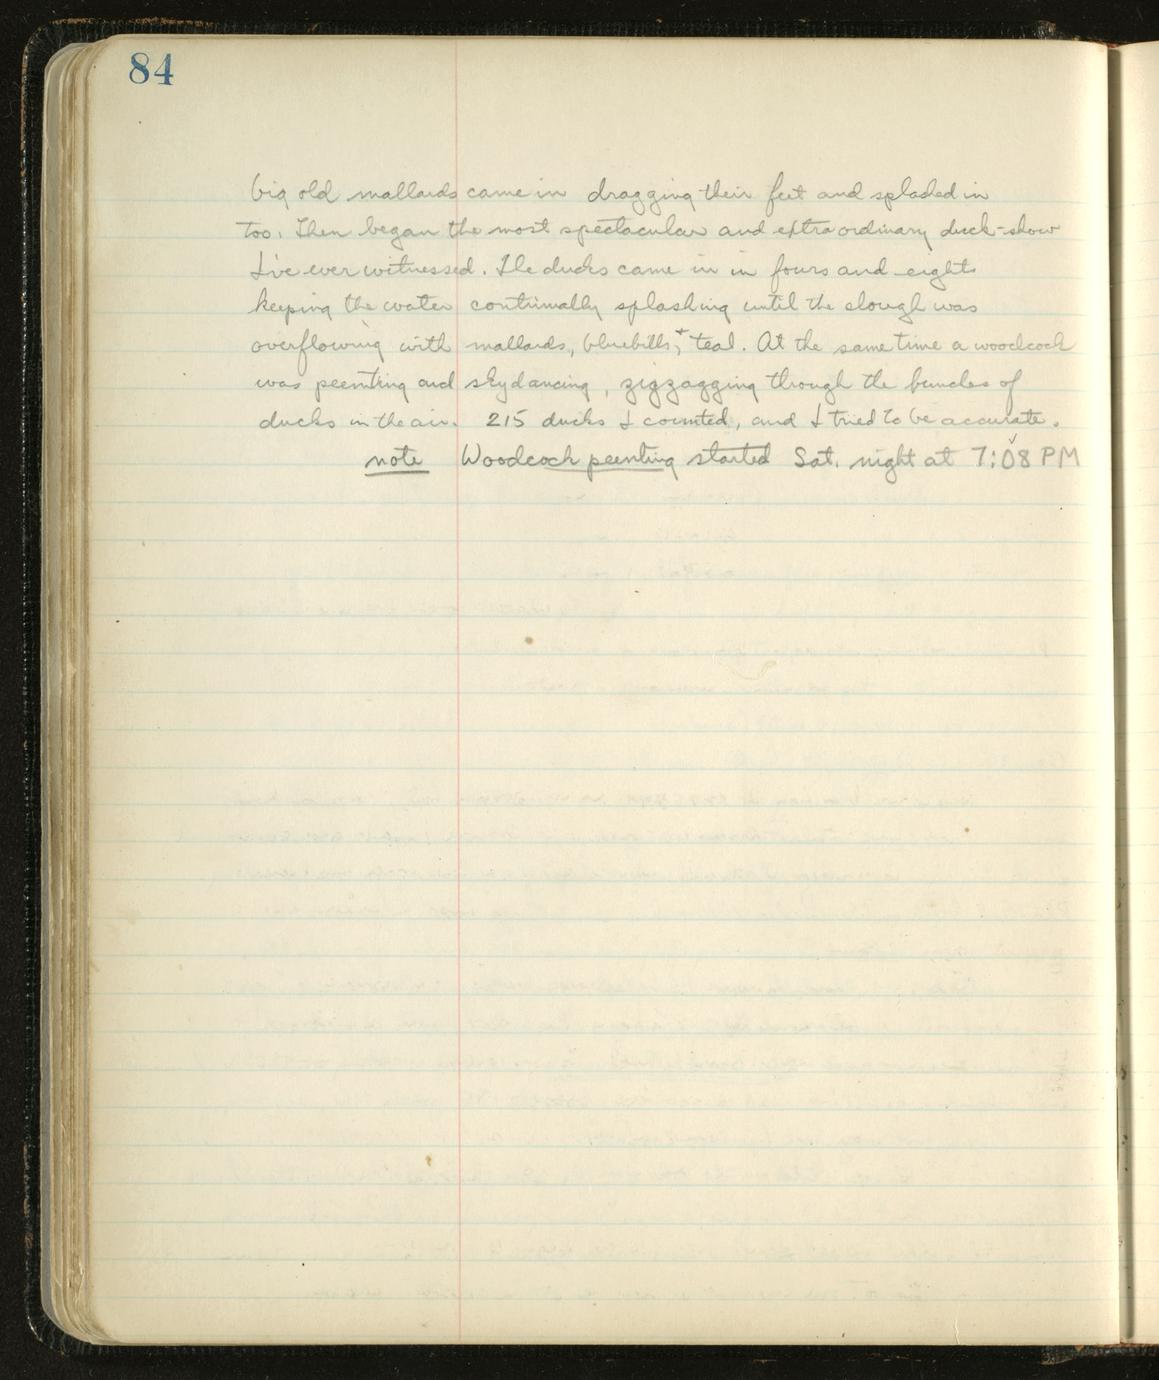 84
big old mallards came in dragging their feet and splashed in
too. Then began the most spectacular and extraordinary duck-show
I've ever witnessed. The ducks came in in fours and eights
keeping the water continually splashing until the slough was
overflowing with mallards, bluebills, + teal. At the same time a woodcock
was peenting and skydancing, zigzagging through the bunches of
ducks in the air. 215 ducks I counted, and I tried to be accurate.
note Woodcock peenting started Sat. night at 7:08 PM